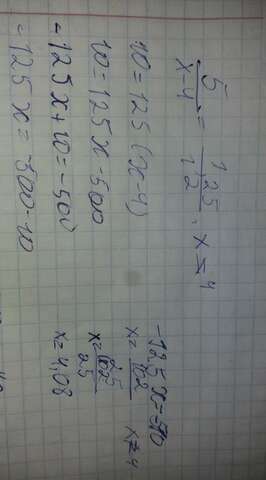 5/x-4 = 125/2, x ≠ 4
10 = 125 (x-4)
10 = 125x - 500
-125x + 10 = -500
-125x = -500-10
-125x = -510
x ≠ 4
x = 4,08